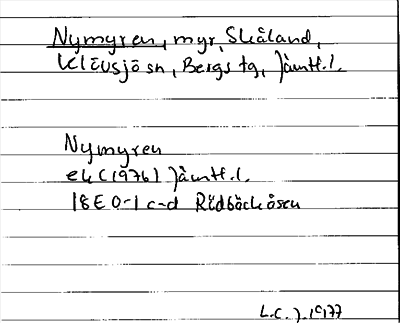 Nymyren, myr, Skåland,
Klövsjö sn, Bergs tg, Jämtl. l.
Nymyren
ek (1976) Jämtl. l.
18E 0-1 c-d Rödbäckåsen
L.C.J. 1977